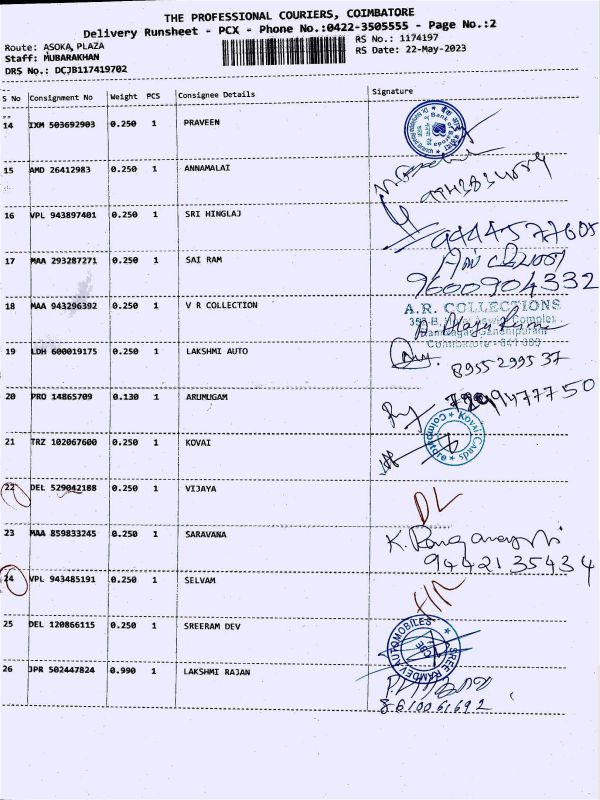 THE PROFESSIONAL COURIERS, COIMBATORE
Delivery Runsheet - PCX - Phone No.:0422-3505555 - Page No.:2
Route: ASOKA, PLAZA RS No.: 1174197
Staff: MUBARAKHAN RS Date: 22-May-2023
DRS No.: DCJB117419702
S No Consignment No Weight PCS Consignee Details Signature
14 IXM 503692903 0.250 1 PRAVEEN
15 AMD 26412983 0.250 1 ANNAMALAI
16 VPL 943897401 0.250 1 SRI HINGLAJ
17 MAA 293287271 0.250 1 SAI RAM
9600904332
18 MAA 943296392 0.250 1 V R COLLECTION
A.R. COLLECTIONS
Coimbatore - 641 009
19 LDH 600019175 0.250 1 LAKSHMI AUTO
8955299537
20 PRO 14865709 0.130 1 ARUMUGAM
21 TRZ 102067600 0.250 1 KOVAI
Kovai Cards Coimbatore
22 DEL 529042188 0.250 1 VIJAYA DL
23 MAA 859833245 0.250 1 SARAVANA
9442135434
24 VPL 943485191 0.250 1 SELVAM
25 DEL 120866115 0.250 1 SREERAM DEV
SREE RAMDEV AUTOMOBILES
26 JPR 502447824 0.990 1 LAKSHMI RAJAN
8610061692